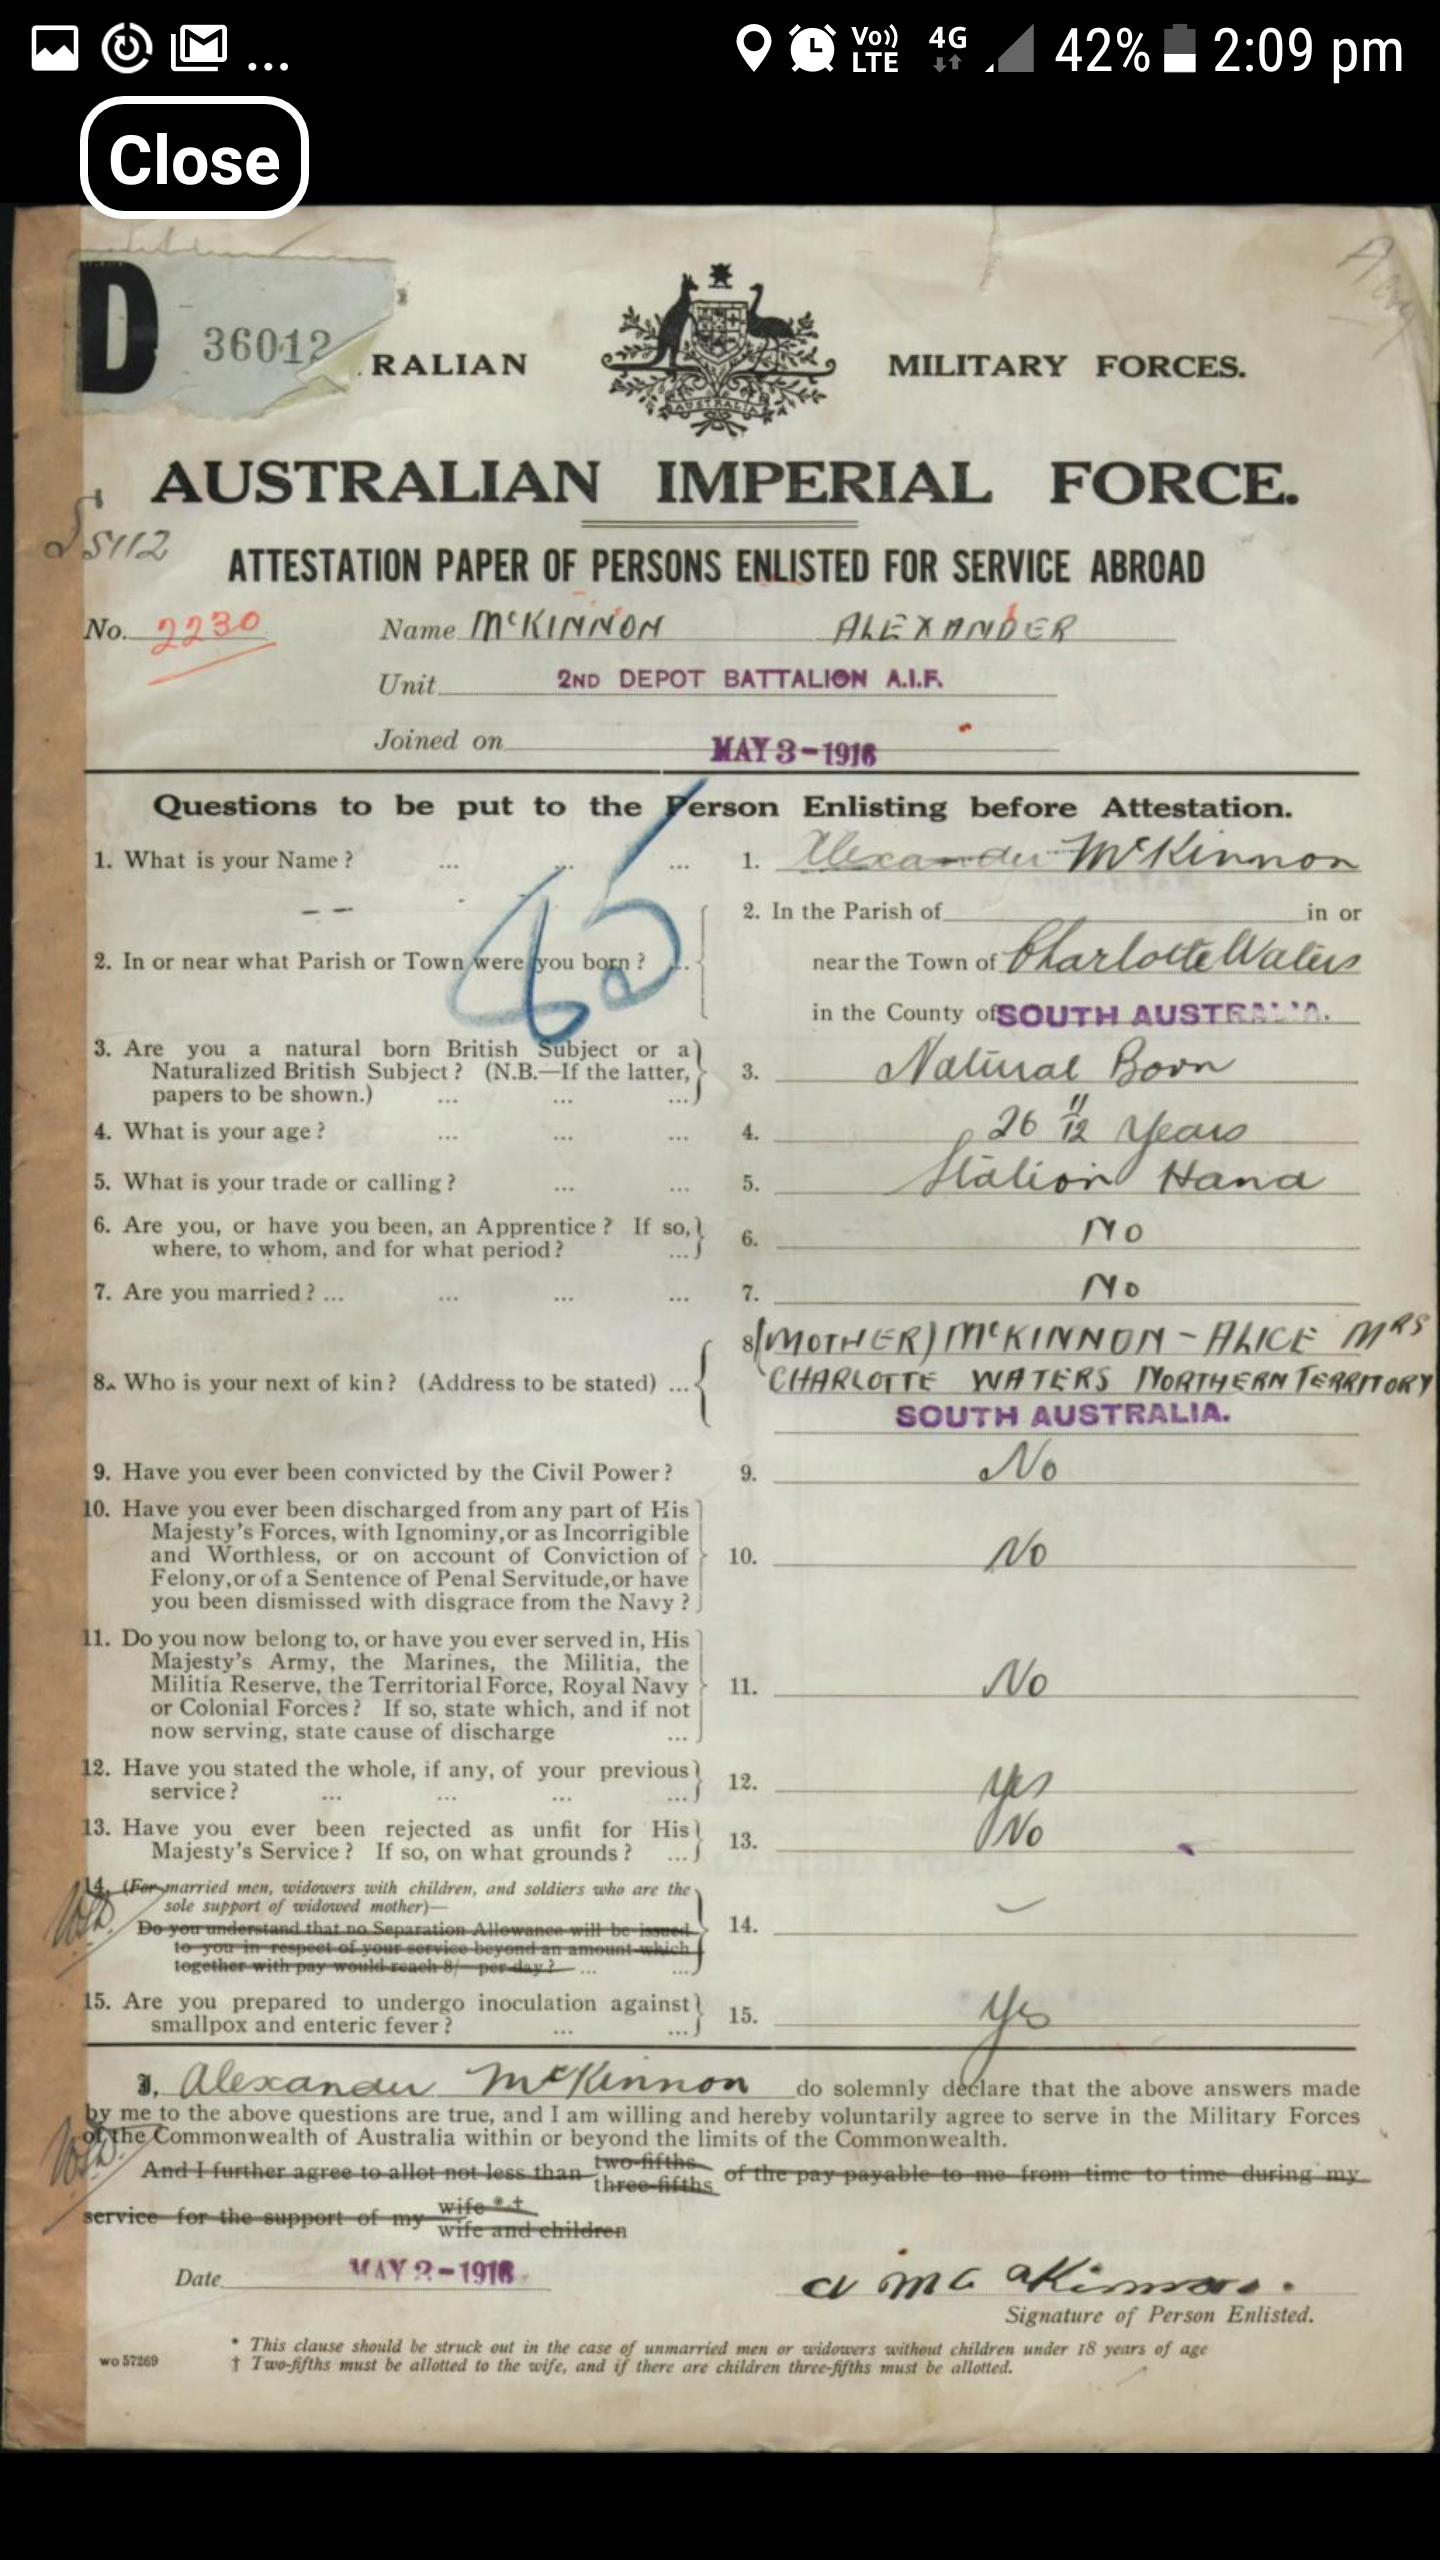 ... 42% 2:09 pm
Vo)) LTE 4G
Close
D 36012 RALIAN MILITARY FORCES.
AUSTRALIA
AUSTRALIAN IMPERIAL FORCE.
S5112
ATTESTATION PAPER OF PERSONS ENLISTED FOR SERVICE ABROAD
No. 2230 Name McKINNON ALEXANDER
Unit 2ND DEPOT BATTALION A.I.F.
Joined on MAY 3-1916
Questions to be put to the Person Enlisting before Attestation.
1. What is your Name? ... ... ... 1. Alexander McKinnon
2. In the Parish of in or
2. In or near what Parish or Town were you born? ... near the Town of Charlotte Waters
in the County of SOUTH AUSTRALIA.
3. Are you a natural born British Subject or a
Naturalized British Subject? (N.B.—If the latter, 3. Natural Born
papers to be shown.) ... ... ...
4. What is your age? ... ... ... 4. 26 11/12 Years
5. What is your trade or calling? ... ... 5. Station Hand
6. Are you, or have you been, an Apprentice? If so,
where, to whom, and for what period? ... 6. No
7. Are you married? ... ... ... ... 7. No
8. (MOTHER) McKINNON - ALICE MRS
8. Who is your next of kin? (Address to be stated) ... CHARLOTTE WATERS NORTHERN TERRITORY
SOUTH AUSTRALIA.
9. Have you ever been convicted by the Civil Power? 9. No
10. Have you ever been discharged from any part of His
Majesty's Forces, with Ignominy, or as Incorrigible
and Worthless, or on account of Conviction of 10. No
Felony, or of a Sentence of Penal Servitude, or have
you been dismissed with disgrace from the Navy?
11. Do you now belong to, or have you ever served in, His
Majesty's Army, the Marines, the Militia, the
Militia Reserve, the Territorial Force, Royal Navy 11. No
or Colonial Forces? If so, state which, and if not
now serving, state cause of discharge ...
12. Have you stated the whole, if any, of your previous
service? ... ... ... ... 12. Yes
13. Have you ever been rejected as unfit for His
Majesty's Service? If so, on what grounds? ... 13. No
14. (For married men, widowers with children, and soldiers who are the
sole support of widowed mother)—
Do you understand that no Separation Allowance will be issued 14.
to you in respect of your service beyond an amount which
together with pay would reach 8/- per day? ... ...
15. Are you prepared to undergo inoculation against
smallpox and enteric fever? ... ... 15. Yes
I, Alexander McKinnon do solemnly declare that the above answers made
by me to the above questions are true, and I am willing and hereby voluntarily agree to serve in the Military Forces
of the Commonwealth of Australia within or beyond the limits of the Commonwealth.
And I further agree to allot not less than two-fifths three-fifths of the pay payable to me from time to time during my
service for the support of my wife * † wife and children
Date MAY 3-1916
Signature of Person Enlisted.
* This clause should be struck out in the case of unmarried men or widowers without children under 18 years of age
wo 57269 † Two-fifths must be allotted to the wife, and if there are children three-fifths must be allotted.